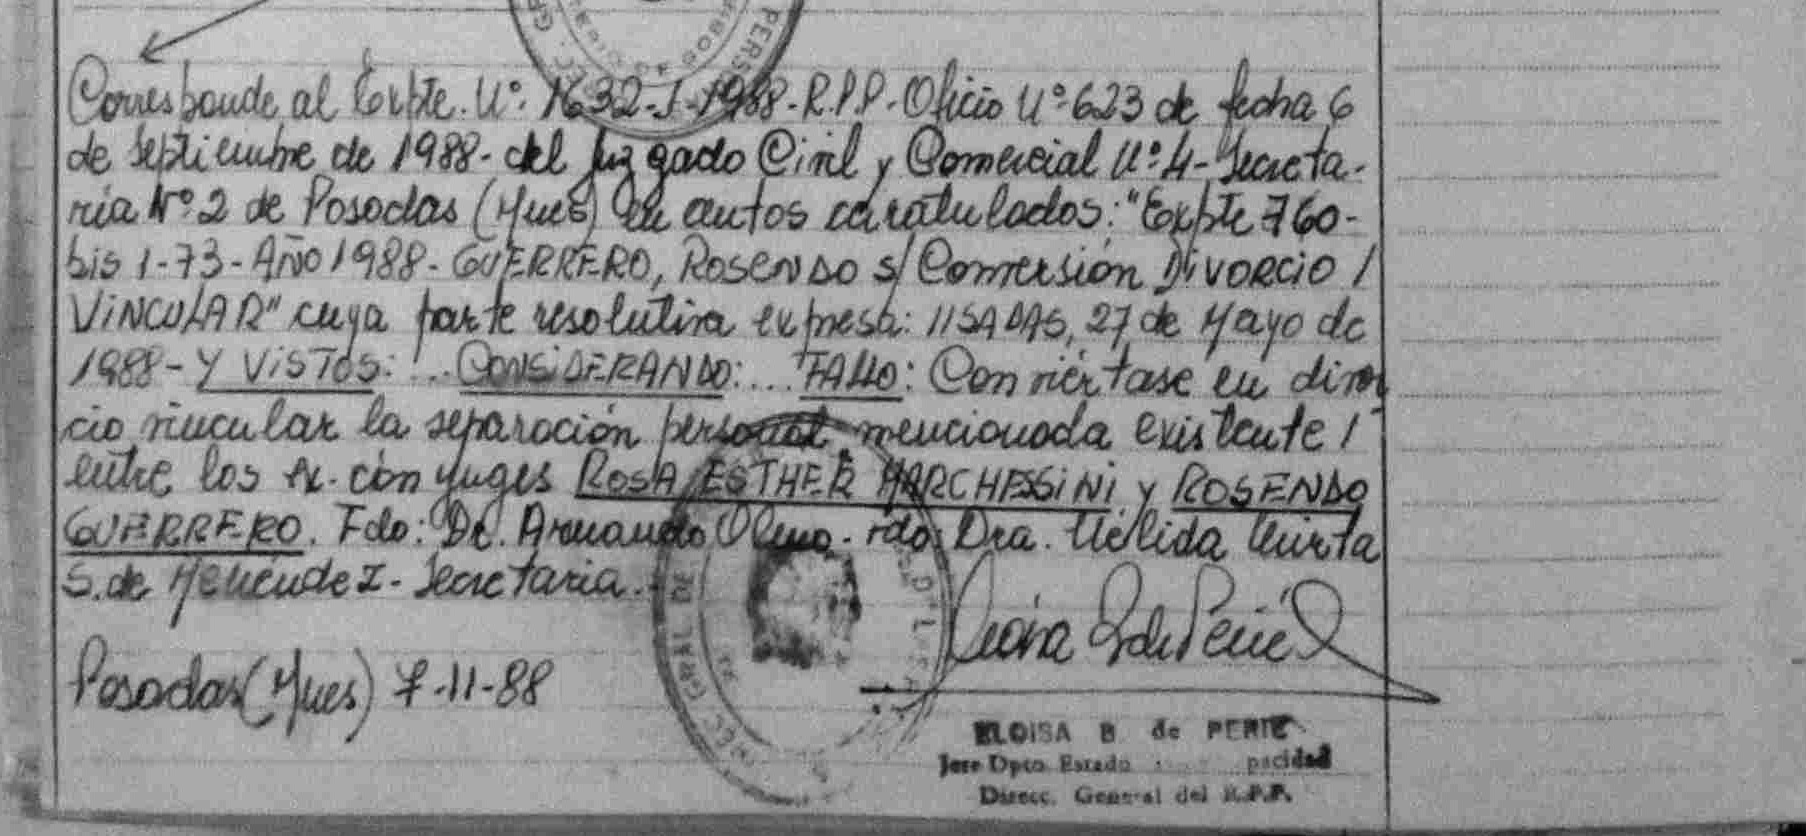 Corresponde al Expte. Nº. 1632-J-1988-R.P.P-Oficio Nº 623 de fecha 6
de septiembre de 1988-del Juzgado Civil y Comercial Nº 4-Secreta-
ria Nº 2 de Posadas (Mnes) en autos caratulados: "Expte 760-
bis 1-73-Año 1988-GUERRERO, ROSENDO s/ Conversión DiVORCiO /
ViNCULAR" cuya parte resolutiva expresa: //SADAS, 27 de Mayo de
1988-Y ViSTOS: ... CONSiDERANDO: ... FALLO: Conviértase en divor
cio vincular la separación personal mencionada existente /
entre los ex. cónyuges ROSA ESTHER MARCHESSiNi y ROSENDO
GUERRERO. Fdo: Dr. Armando Fdo: Dra. Nélida Mirta
S. de Menéndez-Secretaria.
Posadas (Mnes) 7-11-88
ELOISA B de PERIE
Jefe Dpto Estado pacidad
Direcc. General del R.P.P.